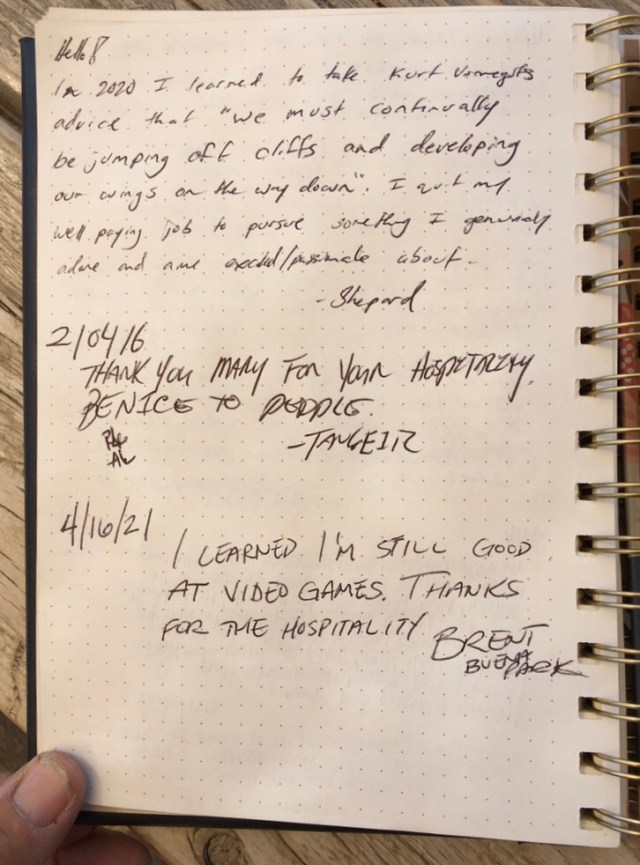 Hello!
In 2020 I learned to take Kurt Vonneguts
advice that "we must continually
be jumping off cliffs and developing
our wings on the way down". I quit my
well paying job to pursue something I genuinely
adore and am excited/passionate about.
-Shepard
2/04/6
THANK YOU MARY FOR YOUR HOSPITALITY.
BE NICE TO PEOPLE.
4/16/21
I LEARNED I'M STILL GOOD
AT VIDEO GAMES. THANKS
FOR THE HOSPITALITY
BRENT
BUENA
PARK